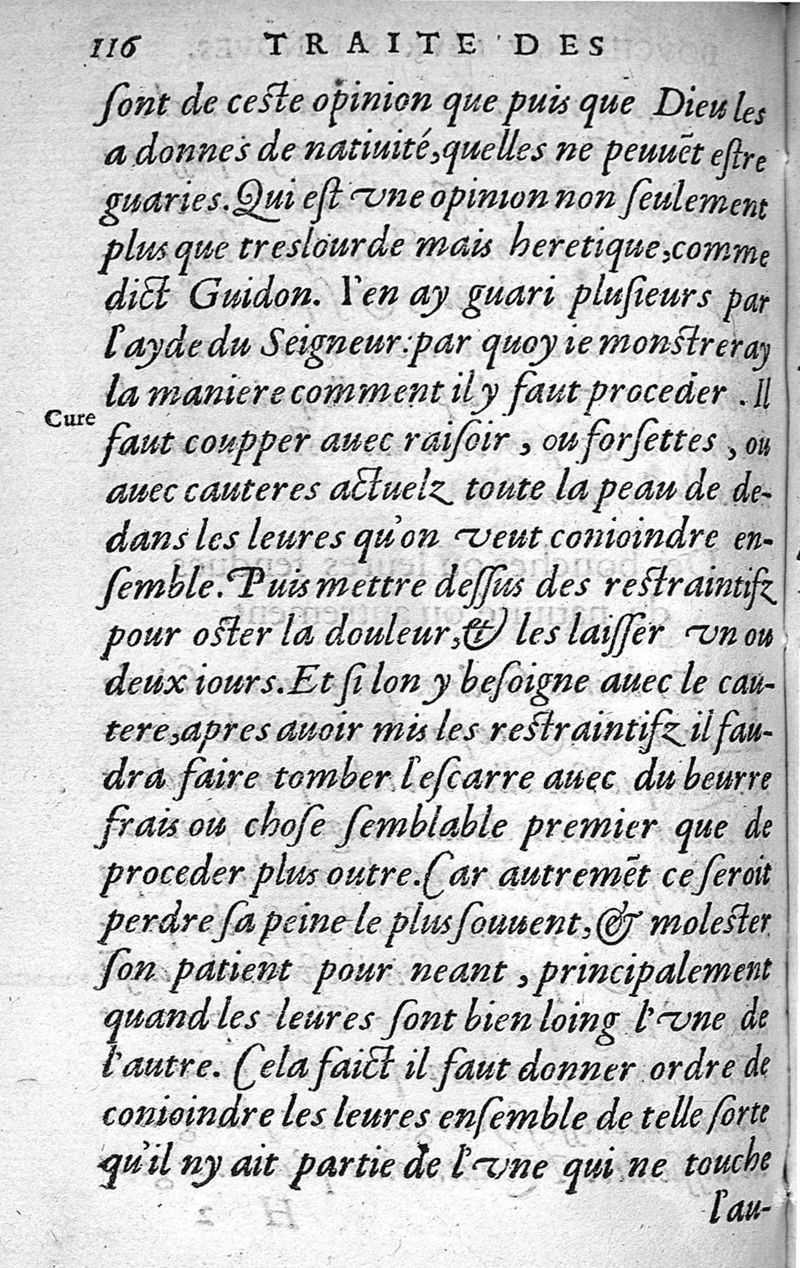 116 TRAITE DES
ſont de ceſte opinion que puis que Dieu les
a donnes de natiuité, quelles ne peuuēt eſtre
guaries. Qui eſt vne opinion non ſeulement
plus que treslourde mais heretique, comme
dict Guidon. I'en ay guari pluſieurs par
l'ayde du Seigneur: par quoy ie monſtreray
la maniere comment il y faut proceder. Il
Cure
faut coupper auec raiſoir, ou forſettes, ou
auec cauteres actuelz toute la peau de de-
dans les leures qu'on veut conioindre en-
ſemble. Puis mettre deſſus des reſtraintifz
pour oſter la douleur, & les laiſſer vn ou
deux iours. Et ſi lon y beſoigne auec le cau-
tere, apres auoir mis les reſtraintifz il fau-
dra faire tomber l'eſcarre auec du beurre
frais ou choſe ſemblable premier que de
proceder plus outre. Car autremēt ce ſeroit
perdre ſa peine le plus ſouuent, & moleſter
ſon patient pour neant, principalement
quand les leures ſont bien loing l'vne de
l'autre. Cela faict il faut donner ordre de
conioindre les leures enſemble de telle ſorte
qu'il ny ait partie de l'vne qui ne touche
l'au-